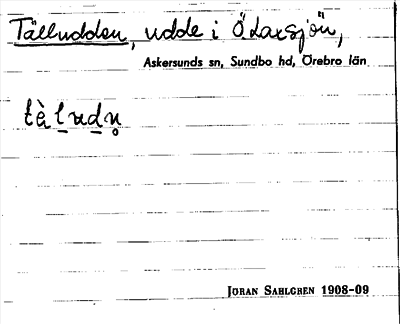 Tälludden, udde i Ödarsjön,
Askersunds sn, Sundbo hd, Örebro län
JÖRAN SAHLGREN 1908-09